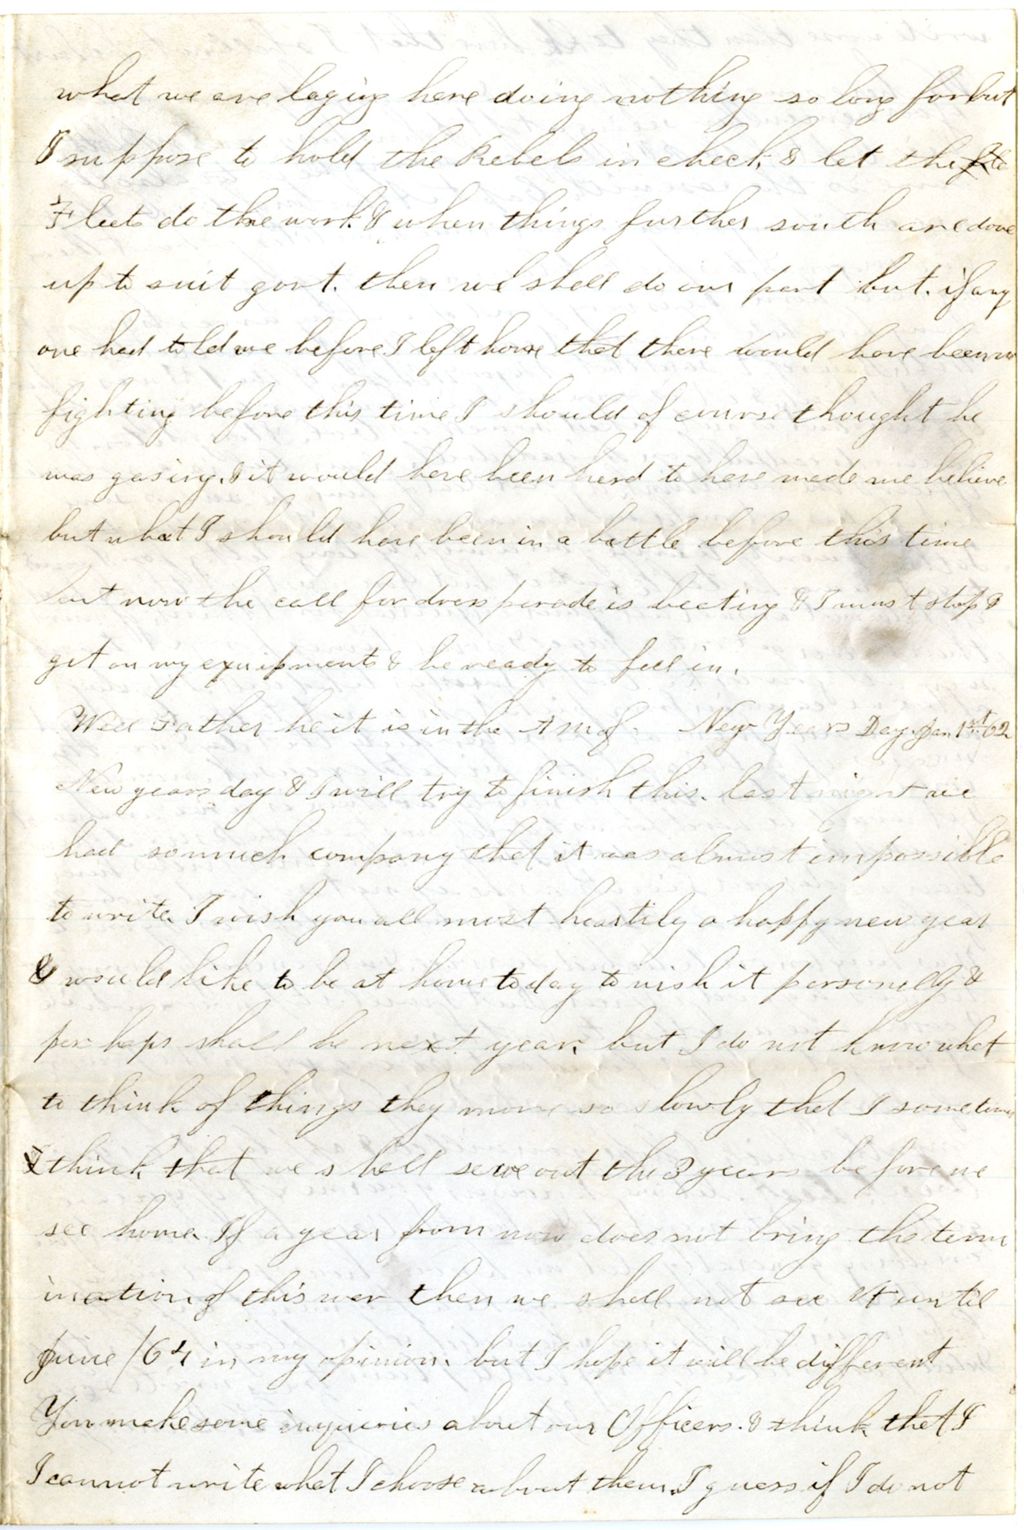 what we are laying here doing nothing so long for but
I suppose to hold the Rebels in check & let the
Fleets do the work & when things further south are done
up to suit govt. then we shall do our part but. if any
one had told me before I left home that there would have been no
fighting before this time I should of course thought he
was gasing. & it would have been hard to have made me believe
but what I should have been in a battle before this time
but now the call for dress parade is beating & I must stop &
get on my equipments & be ready to fall in.
Well Father he it is in the A m of. New Years Day. Jan 1st /62
New years day & I will try to finish this. last night we
had so much company that it was almost impossible
to write. I wish you all most heartily a happy new year
& would like to be at home today to wish it personelly &
perhaps shall be next year. but I do not know what
to think of things they move so slowly that I sometimes
think that we shall serve out the 3 years before we
see home. If a year from now does not bring the term
ination of this war then we shall not see it until
June /64 in my opinion. but I hope it will be different
You make some inquiries about our Officers. & think that I
I cannot write what I choose about them. I guess if I do not